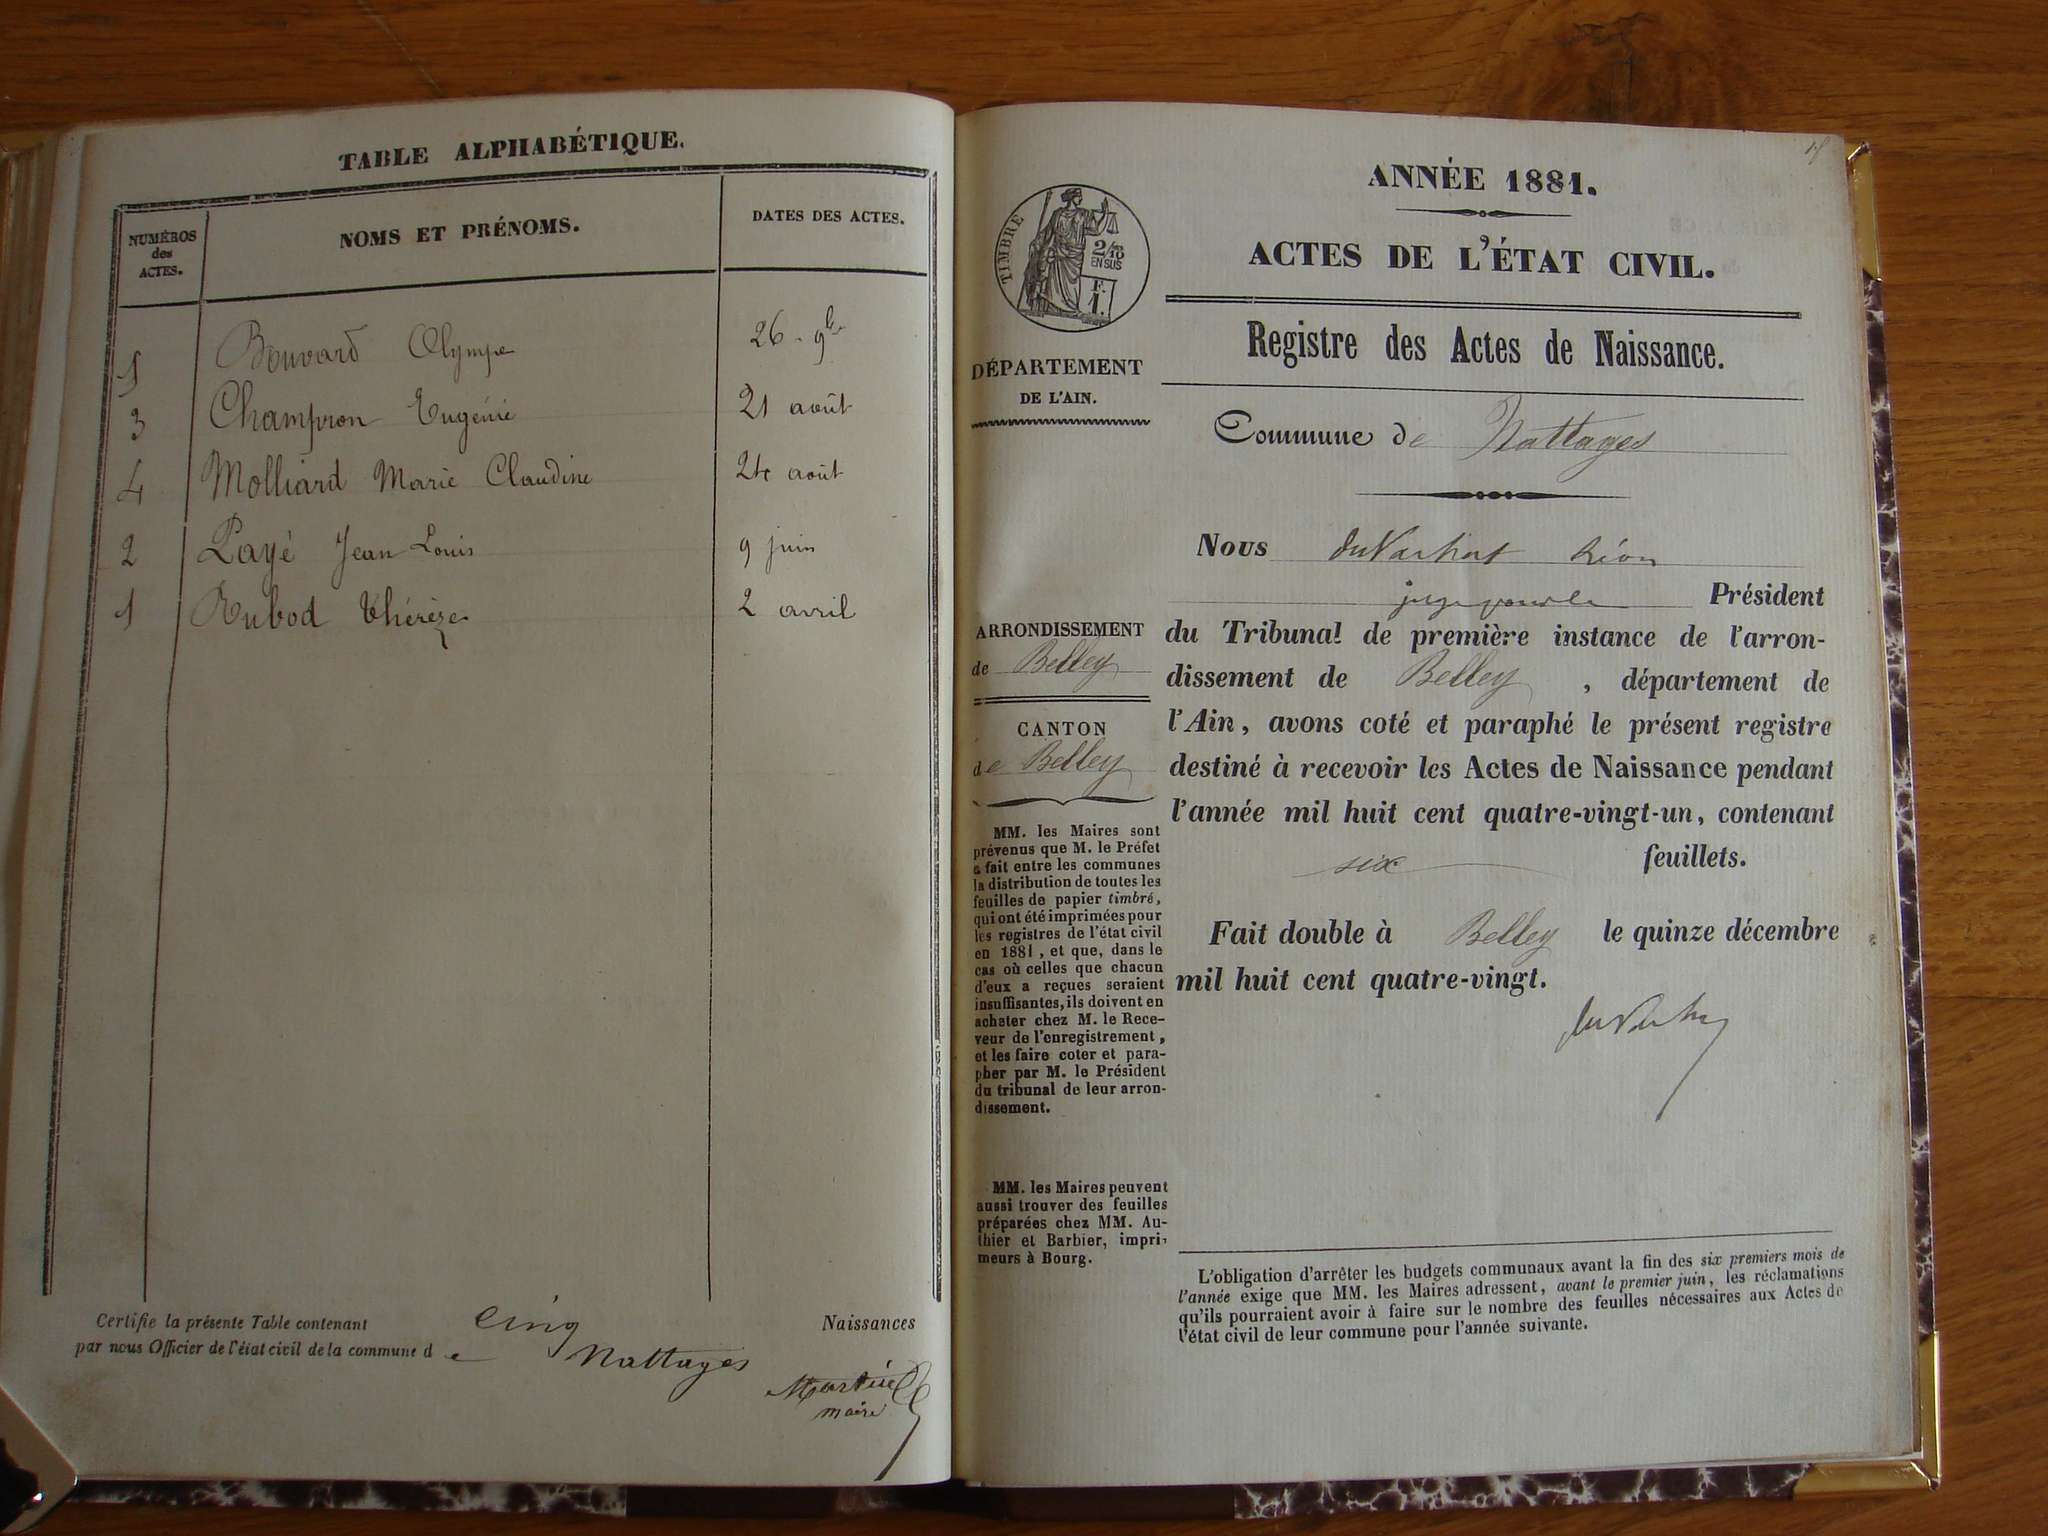 TABLE ALPHABÉTIQUE.
NUMÉROS
des
ACTES.
NOMS ET PRÉNOMS.
DATES DES ACTES.
Bouvard Olympe 26 9bre
3 Champion Eugénie 21 août
4 Molliard Marie Claudine 24 août
2 Payé Jean Louis 9 juin
1 Rubod Thérèze 2 avril
Certifie la présente Table contenant cinq Naissances
par nous Officier de l'état civil de la commune de Nattages
maire
ANNÉE 1881.
ACTES DE L'ÉTAT CIVIL.
TIMBRE
2/10
EN SUS
F.
1.
Registre des Actes de Naissance.
DÉPARTEMENT
DE L'AIN.
Commune de Nattages
Nous Léon
Président
du Tribunal de première instance de l'arron-
dissement de Belley, département de
l'Ain, avons coté et paraphé le présent registre
destiné à recevoir les Actes de Naissance pendant
l'année mil huit cent quatre-vingt-un, contenant
six feuillets.
Fait double à Belley le quinze décembre
mil huit cent quatre-vingt.
ARRONDISSEMENT
de Belley
CANTON
de Belley
MM. les Maires sont
prévenus que M. le Préfet
a fait entre les communes
la distribution de toutes les
feuilles de papier timbré,
qui ont été imprimées pour
les registres de l'état civil
en 1881, et que, dans le
cas où celles que chacun
d'eux a reçues seraient
insuffisantes, ils doivent en
acheter chez M. le Rece-
veur de l'enregistrement,
et les faire coter et para-
pher par M. le Président
du tribunal de leur arron-
dissement.
MM. les Maires peuvent
aussi trouver des feuilles
préparées chez MM. Au-
thier et Barbier, impri-
meurs à Bourg.
L'obligation d'arrêter les budgets communaux avant la fin des six premiers mois de
l'année exige que MM. les Maires adressent, avant le premier juin, les réclamations
qu'ils pourraient avoir à faire sur le nombre des feuilles nécessaires aux Actes de
l'état civil de leur commune pour l'année suivante.